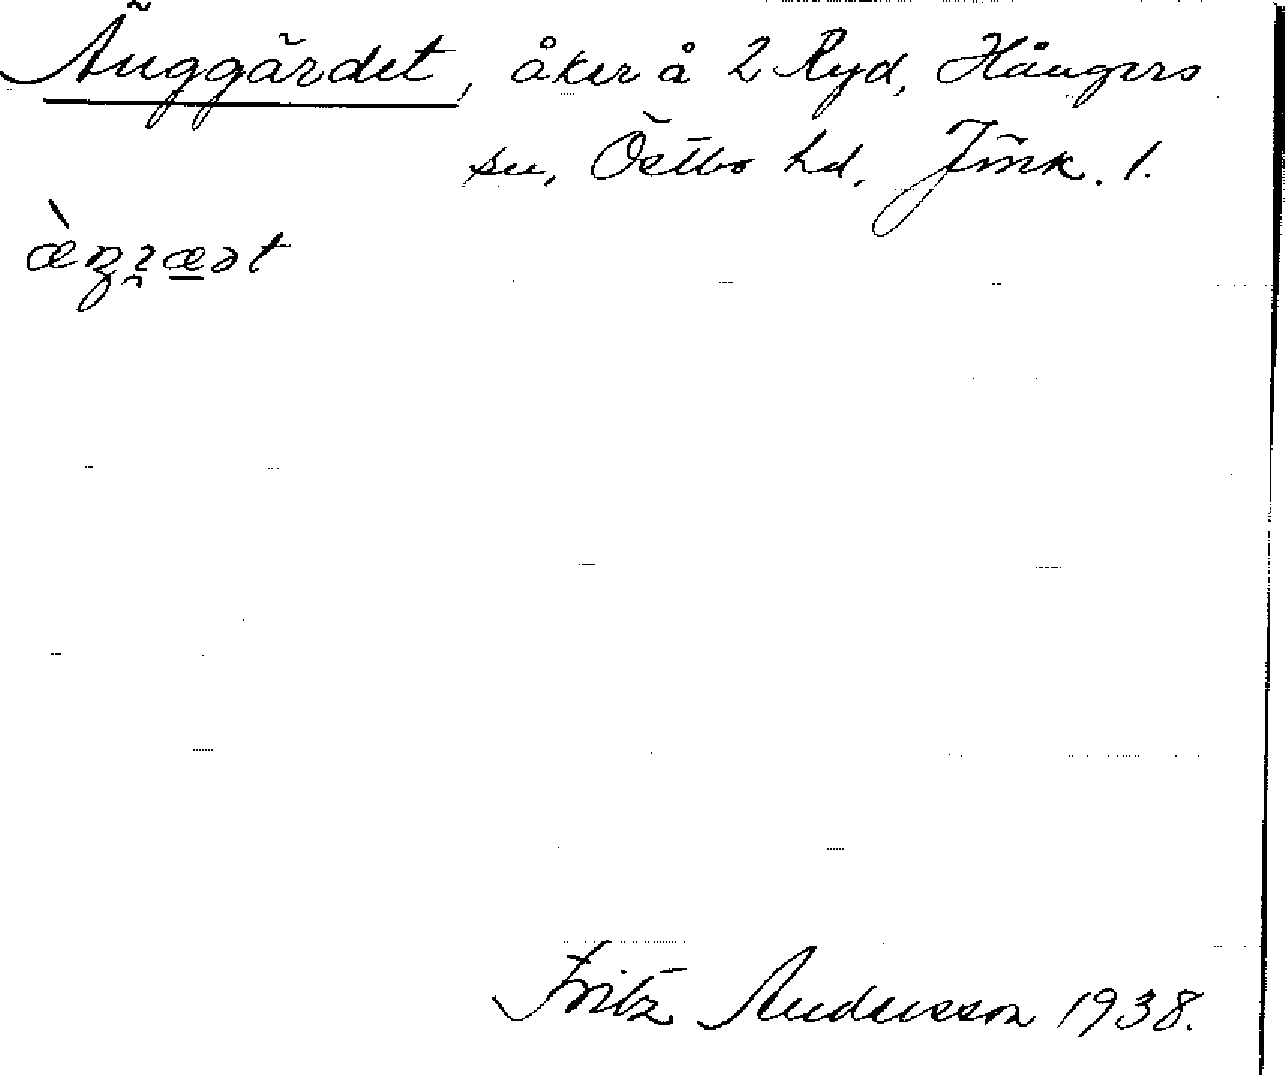 Änggärdet, åker å 2 Ryd, Hångers
sn, Östbo hd, Jönk. l.
Fritz Andersson 1938.